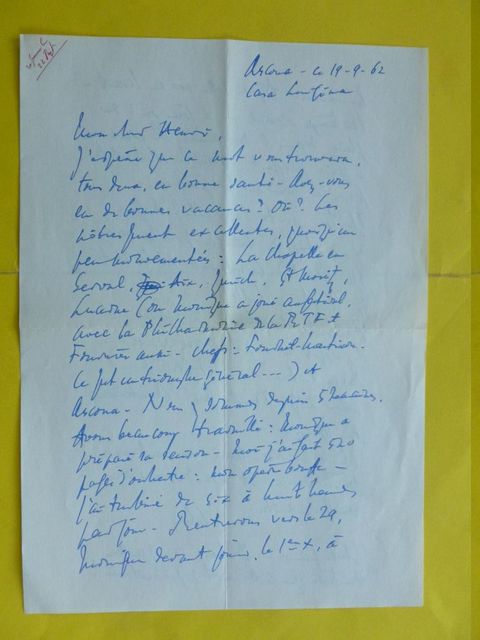 Ascona - ce 19-9-62
Casa
Mon cher Henri,
J'espère que ce mot vous trouvera,
tous deux, en bonne santé - Avez-vous
eu de bonnes vacances? Où? Les
nôtres furent excellentes, quoiqu'un
peu mouvementées: La Chapelle en
Serval, Aix, Zurich, St Moritz,
Lucerne (où Monique a joué au festival,
avec la Philharmonie de la RTF
aussi - chef:
Ce fut un triomphe général ---) et
Ascona - Y sommes depuis 5 semaines.
Avons beaucoup travaillé: Monique a
préparé sa saison - moi j'ai fait 520
pages d'orchestre: mon opéra bouffe -
j'ai turbiné de six à huit heures
par jour - Rentrerons vers le 29,
Monique devant jouer, le 1er X, à